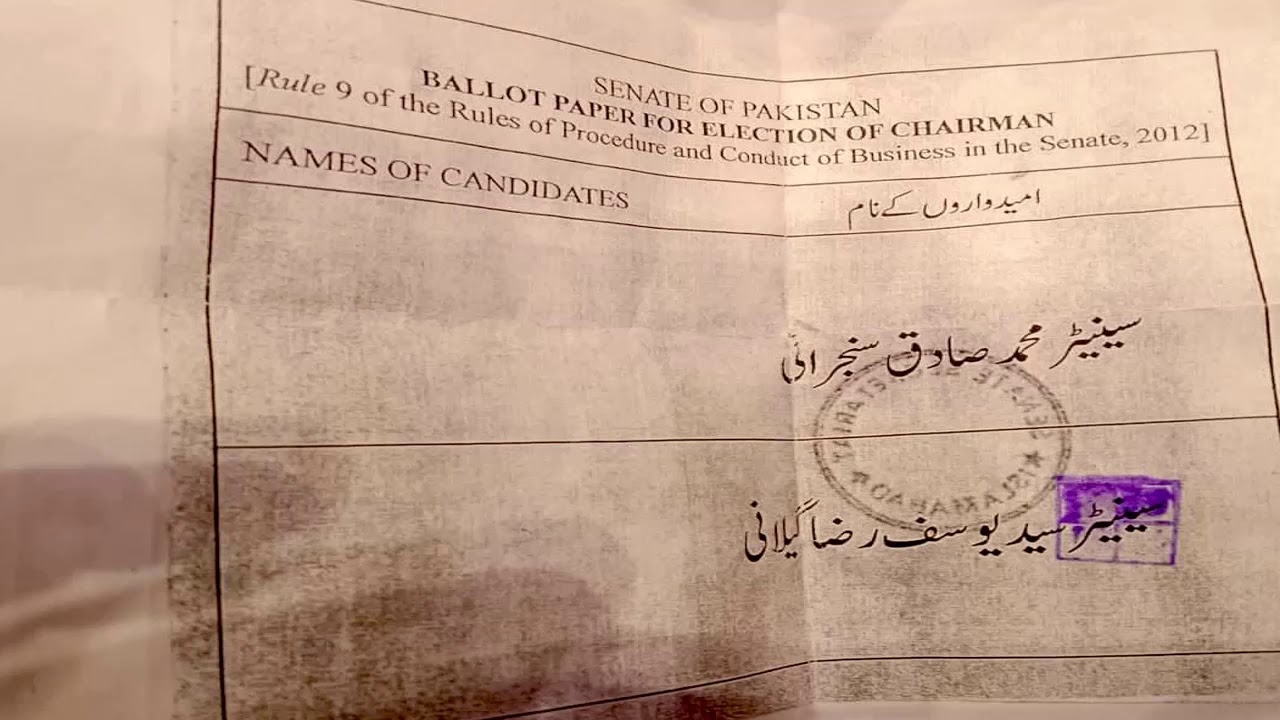 SENATE OF PAKISTAN
BALLOT PAPER FOR ELECTION OF CHAIRMAN
[Rule 9 of the Rules of Procedure and Conduct of Business in the Senate, 2012]
NAMES OF CANDIDATES
امیدواروں کے نام
سینیٹر محمد صادق سنجرانی
SENATE SECRETARIAT
★ ISLAMABAD ★
سینیٹر سید یوسف رضا گیلانی